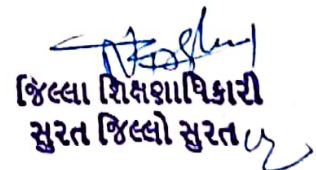 જિલ્લા શિક્ષણાધિકારી
સુરત જિલ્લો સુરત